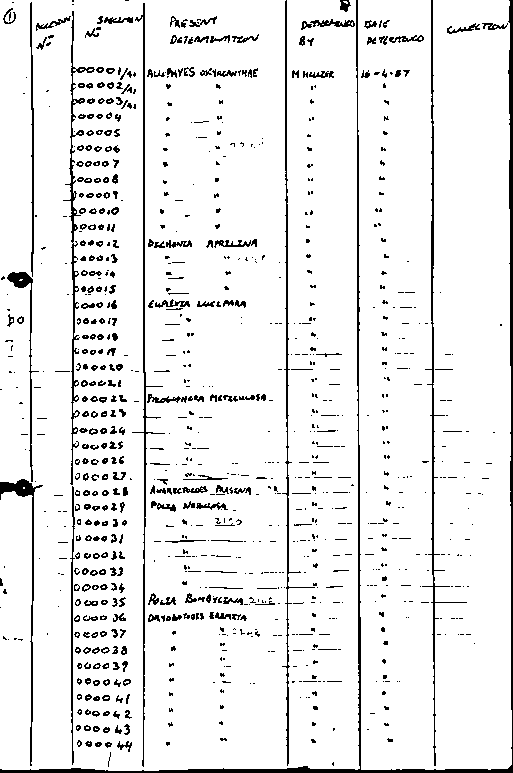 ①
ACCESSION Nº SPECIMEN Nº PRESENT DETERMINATION DETERMINED BY DATE DETERMINED COLLECTION
000001/41 ALLOPHYES OXYACANTHAE 16-4-87
000002/41 " " " "
000003/41 " " " "
000004 " " " "
000005 " " " "
000006 " " " "
000007 " " " "
000008 " " " "
000009 " " " "
000010 " " " "
000011 " " " "
000012 DICHONIA APRILINA " "
000013 " " " "
000014 " " " "
000015 " " " "
000016 EUPLEXIA LUCIPARA " "
000017 " " "
000018 " " "
000019 " " "
000020 " " "
000021 " " "
000022 PHLOGOPHORA METICULOSA " "
000023 " " "
000024 " " "
000025 " " "
000026 " " "
000027 " " "
000028 ANAPLECTOIDES PRASINA " "
000029 POLIA NEBULOSA " "
000030 " 2150 " "
000031 " " "
000032 " " "
000033 " " "
000034 " " "
000035 POLIA BOMBYCINA " "
000036 DRYOBOTODES EREMITA " "
000037 " " " "
000038 " " " "
000039 " " " "
000040 " " " "
000041 " " " "
000042 " " " "
000043 " " " "
000044 " " " "